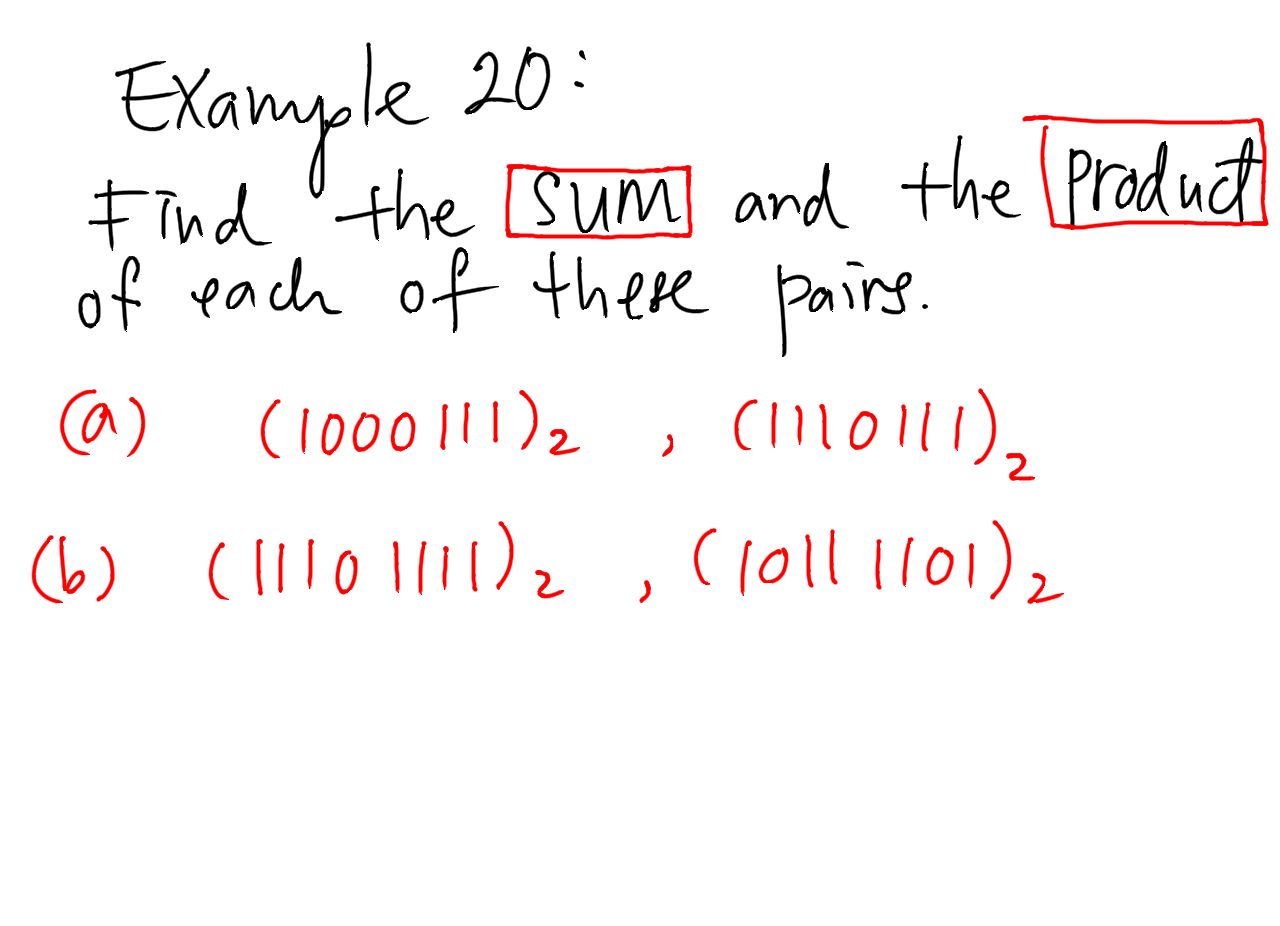 Example 20:
Find the sum and the product
of each of these pairs.
(a) (1000111)₂ , (1110111)₂
(b) (11101111)₂ , (10111101)₂